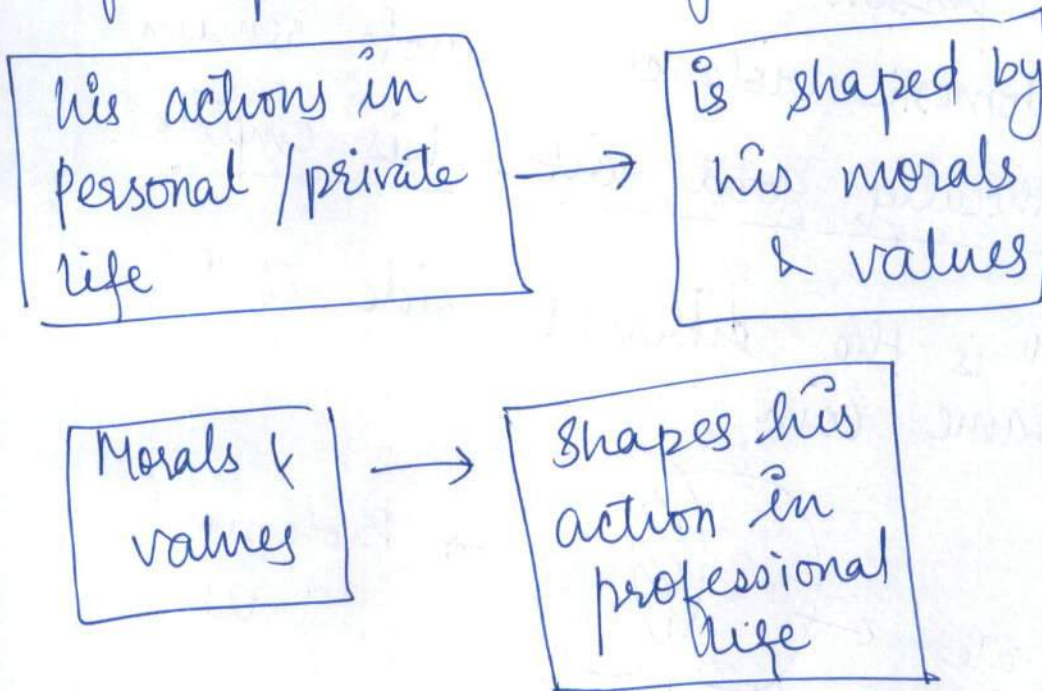 his actions in
personal / private
life
is shaped by
his morals
& values
Morals &
values
Shapes his
action in
professional
life